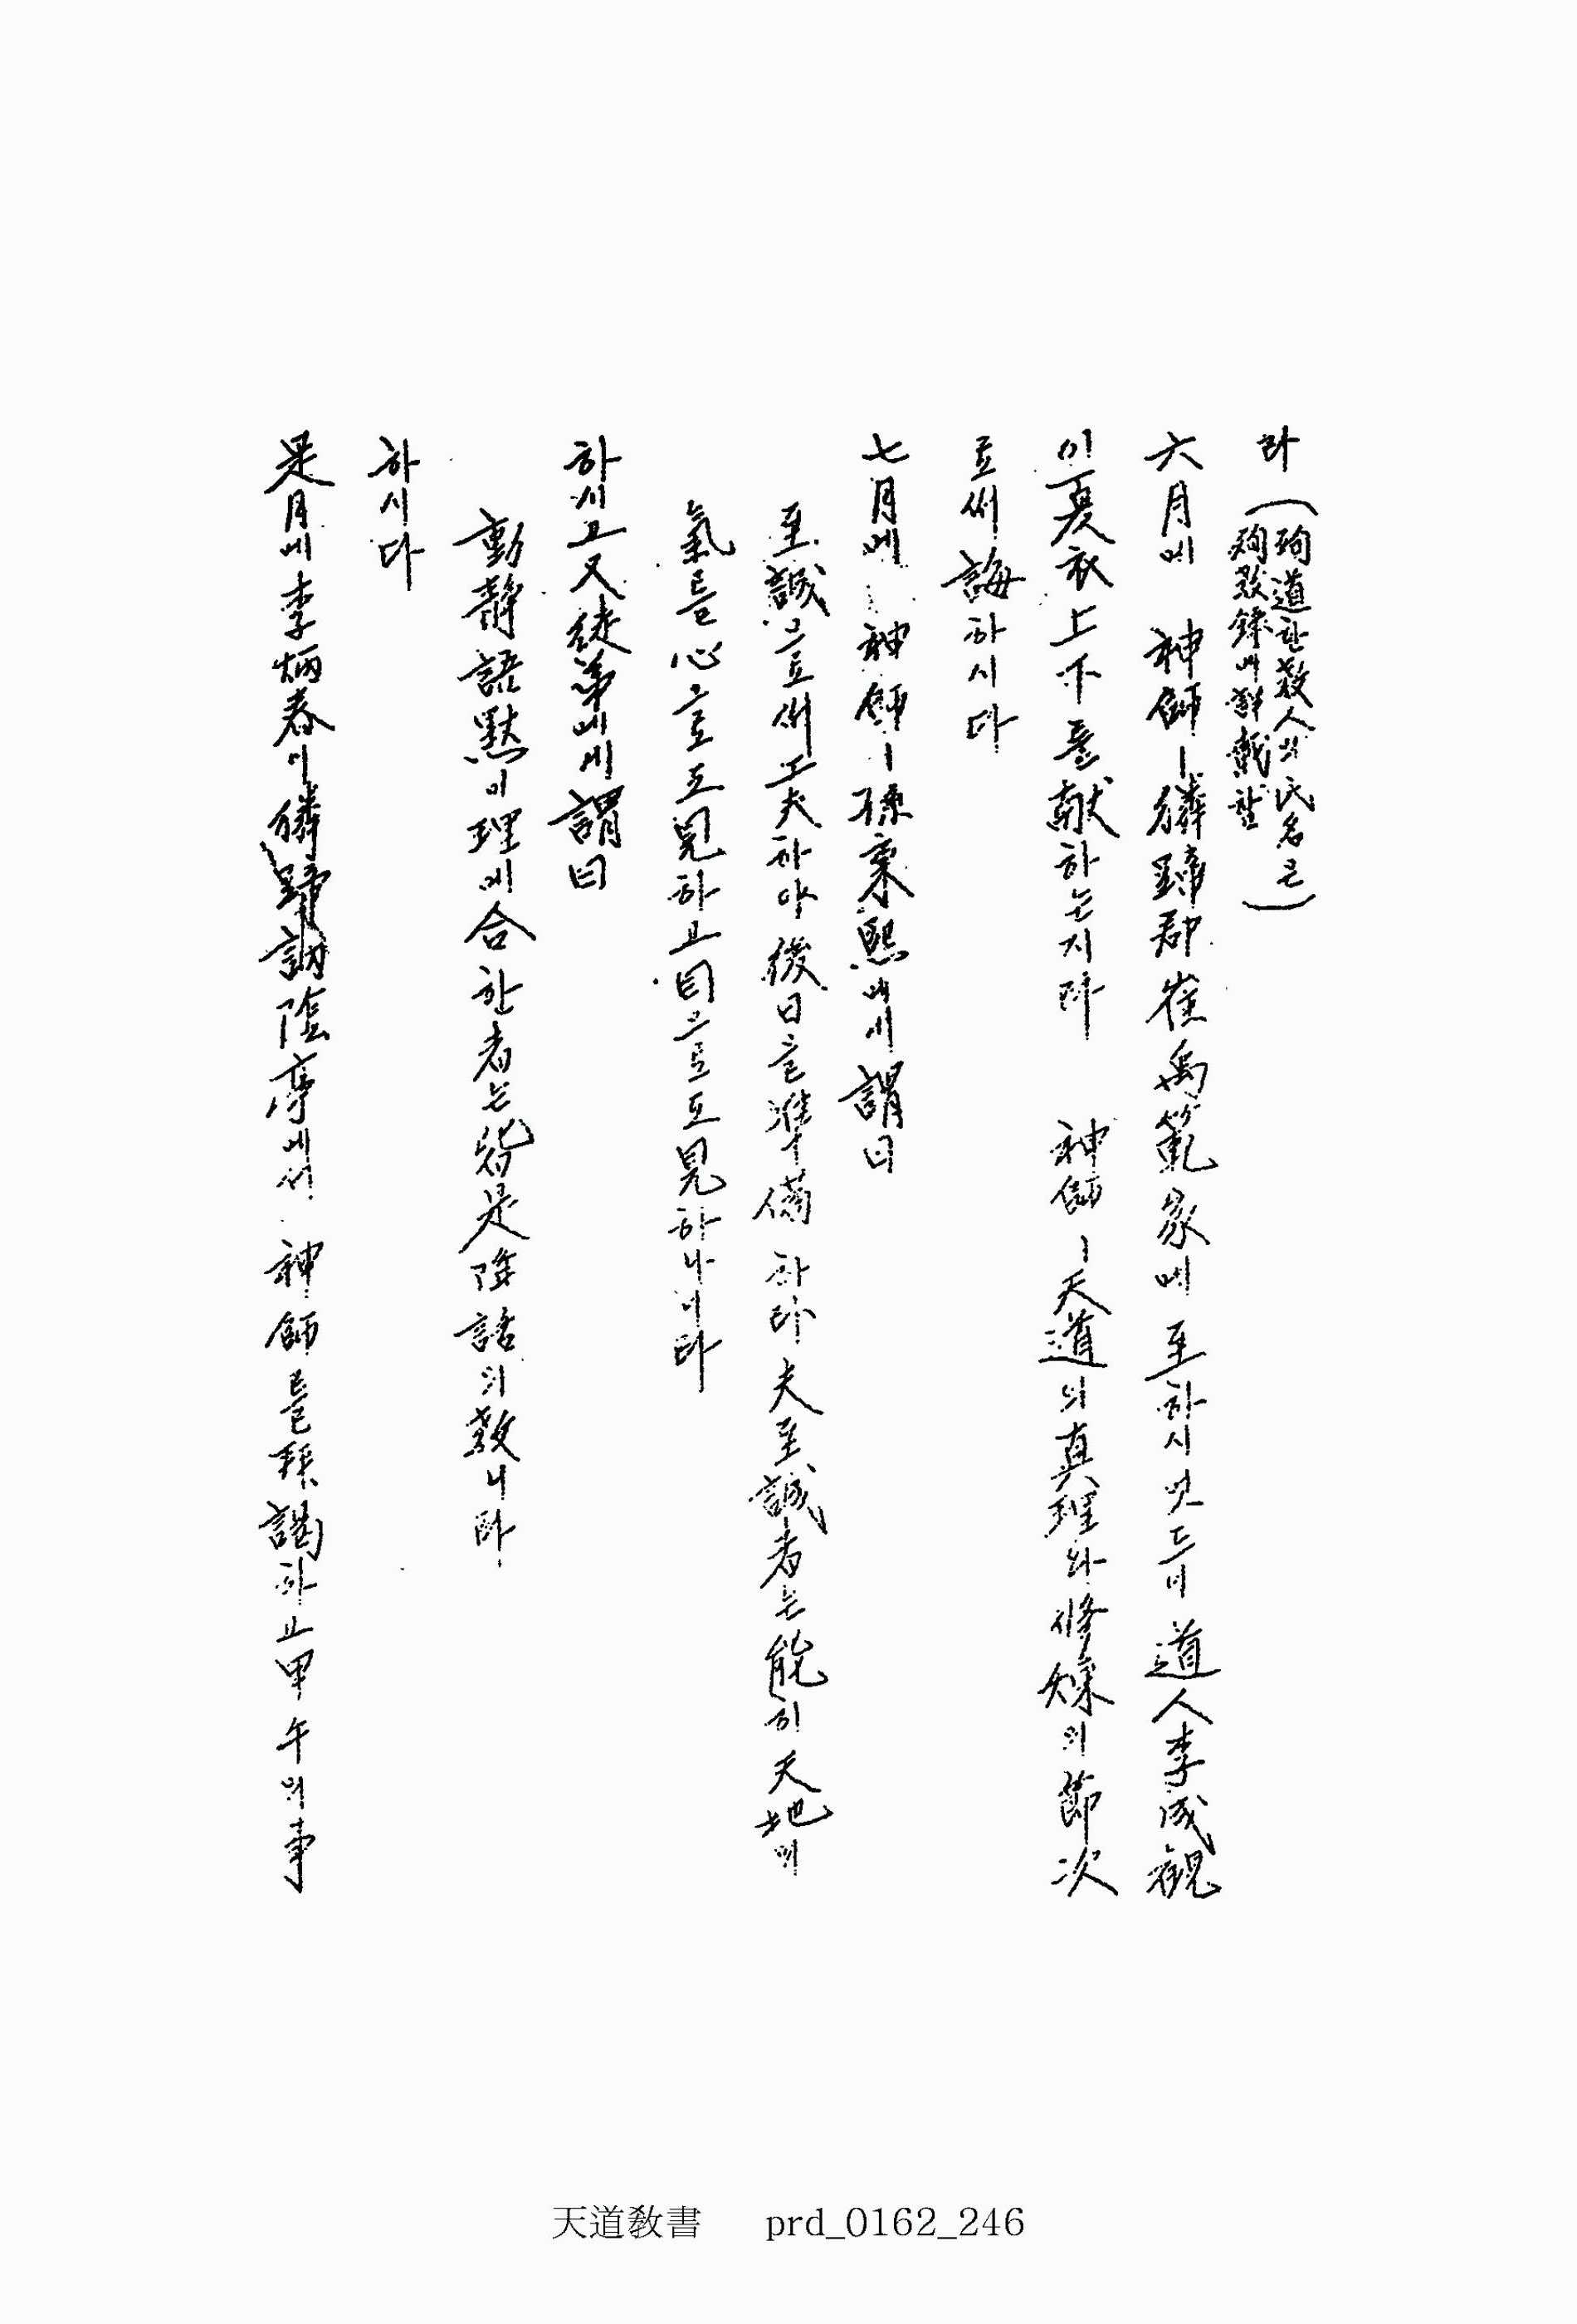 라 (殉道한 敎人의 氏名은
殉敎錄에 詳載함)
六月에 神師ㅣ 麟蹄郡 崔禹範家에 至하시엿드니 道人 李成觀
이 夏衣上下를 献하는지라 神師ㅣ 天道의 真理와 修煉의 節次
로써 誨하시다
七月에 神師ㅣ 孫秉熙에게 謂曰
至誠으로써 工夫하야 後日을 準備하라 夫至誠者는 能히 天地의
氣를 心으로도 見하고 目으로도 見하나니라
하시고 又 徒弟에게 謂曰
動靜語默이 理에 合한 者는 皆是降話의 敎니라
하시다
是月에 李炳春이 麟蹄 訥陰亭에서 神師를 拜謁하고 甲午의 事
天道敎書 prd_0162_246